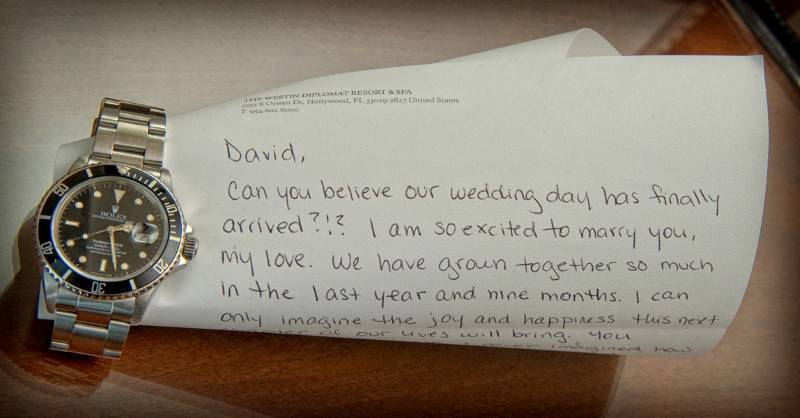 THE WESTIN DIPLOMAT RESORT & SPA
3555 S Ocean Dr, Hollywood, FL 33019-2827 United States
T 954.602.6000
David,
Can you believe our wedding day has finally
arrived?!? I am so excited to marry you,
my love. We have grown together so much
in the last year and nine months. I can
only imagine the joy and happiness this next
of our lives will bring. You
imagined how
ROLEX